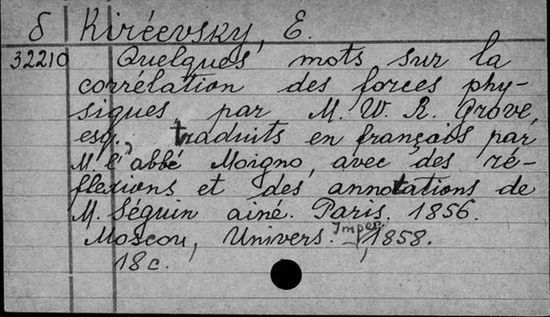 δ Kiréevsky, E.
32210 Quelques mots sur la
corrélation des forces phy-
siques par M. W. R. Grove,
esq. traduits en français par
M. l'abbé Moigno, avec des ré-
flexions et des annotations de
M. Séguin ainé. Paris. 1856.
Moscou, Univers. Imper., 1858.
18 c.